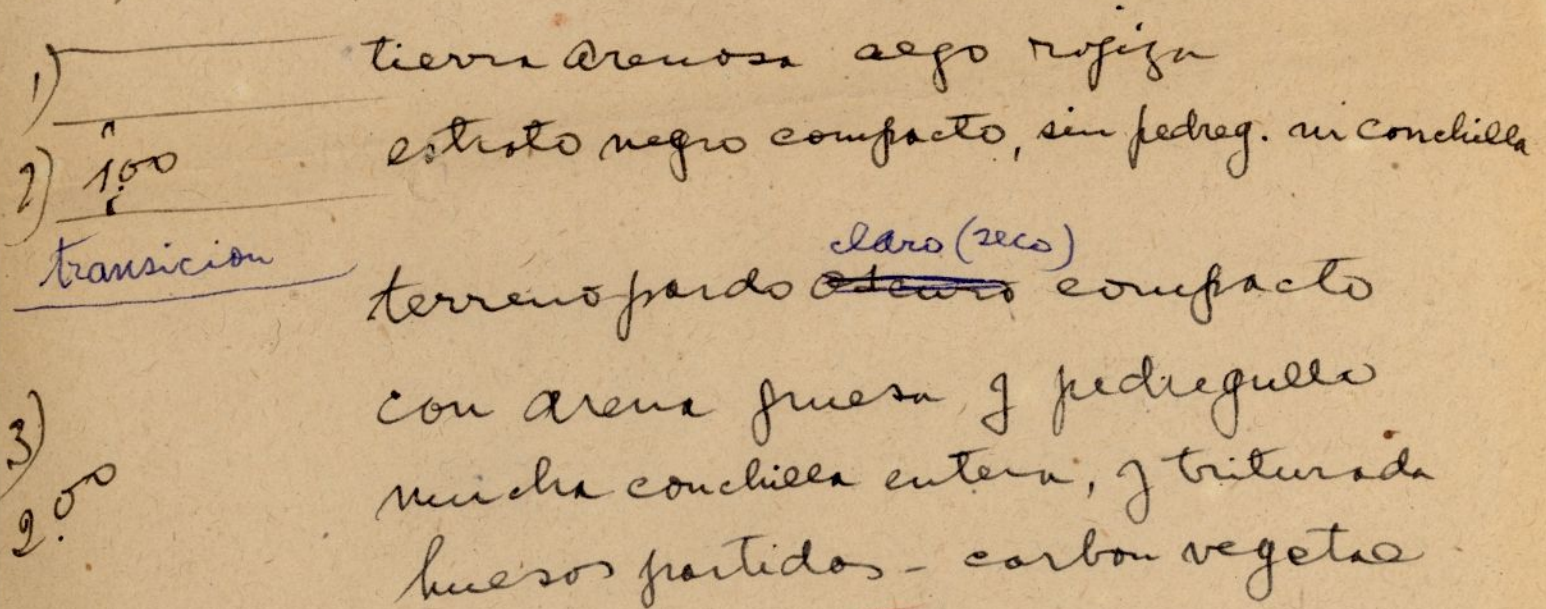 1) tierra arenosa algo rojiza
2) 1.00 estrato negro compacto, sin pedreg. ni conchilla
transicion
claro (seco)
terreno pardo oscuro compacto
con arena gruesa y pedregulla
3) mucha conchilla entera, y triturada
2.00 huesos partidos - carbon vegetal